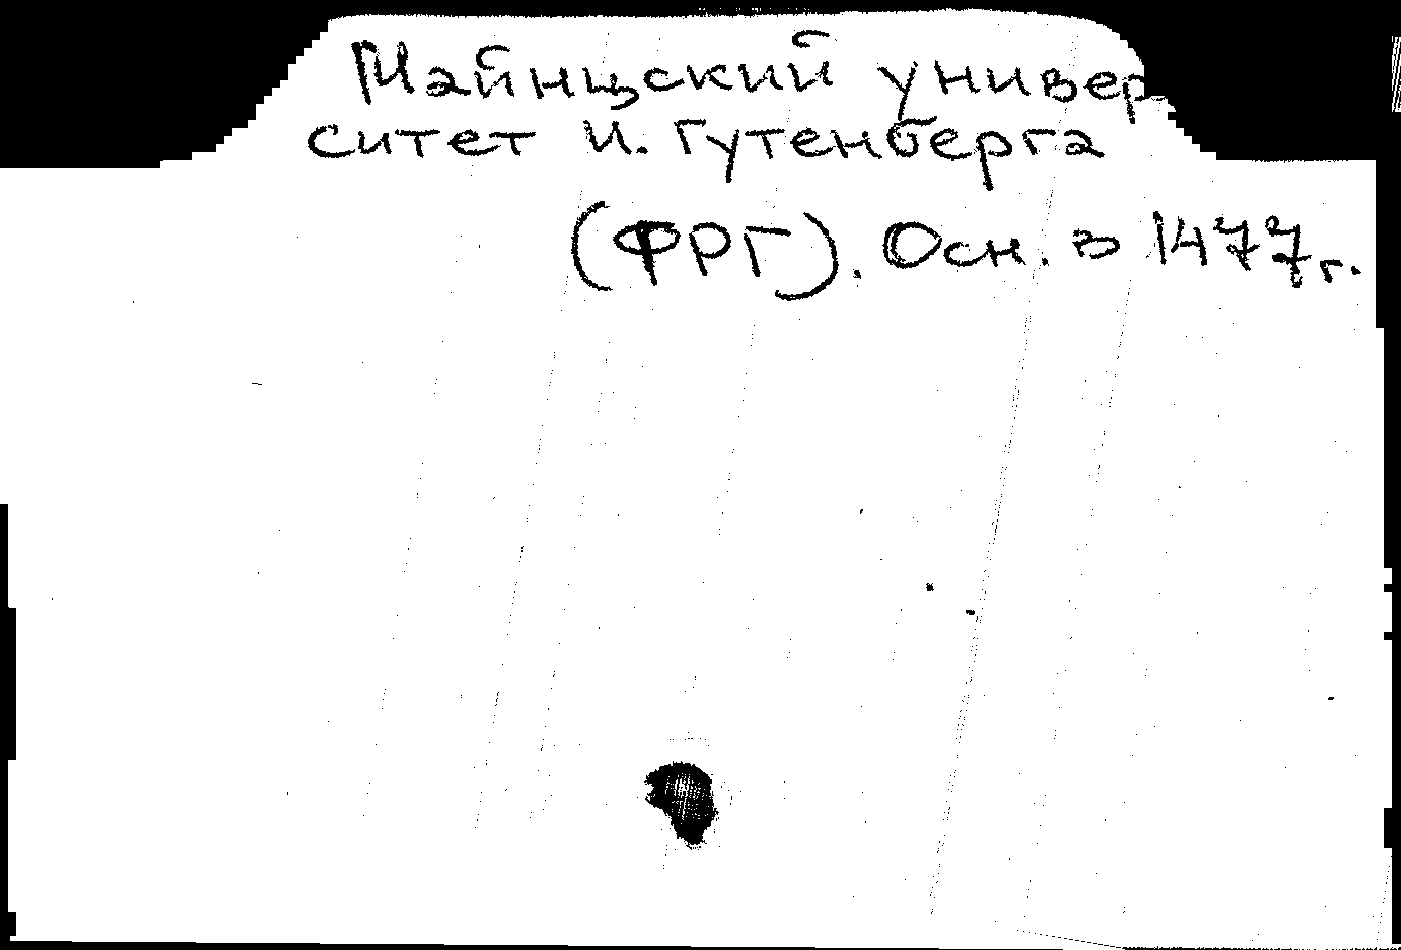 Майнцский универ
ситет И. Гутенберга
(ФРГ). Осн. в 1477 г.